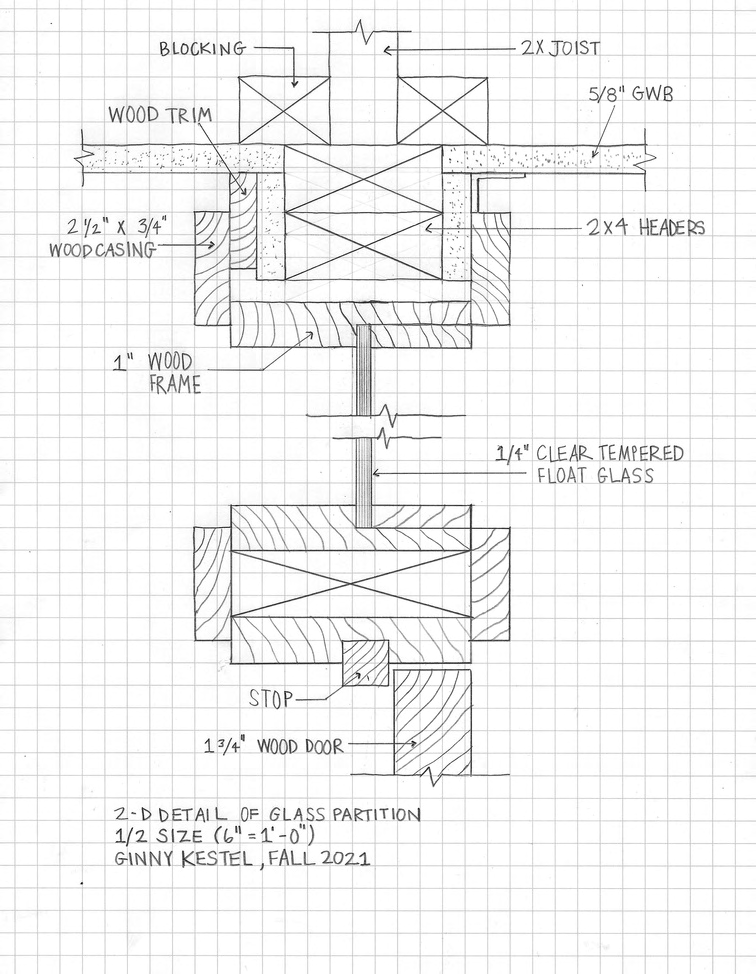 BLOCKING
2X JOIST
5/8" GWB
WOOD TRIM
2 1/2" X 3/4"
WOOD CASING
2X4 HEADERS
1" WOOD
FRAME
1/4" CLEAR TEMPERED
FLOAT GLASS
STOP
1 3/4" WOOD DOOR
2-D DETAIL OF GLASS PARTITION
1/2 SIZE (6" = 1'-0")
GINNY KESTEL, FALL 2021